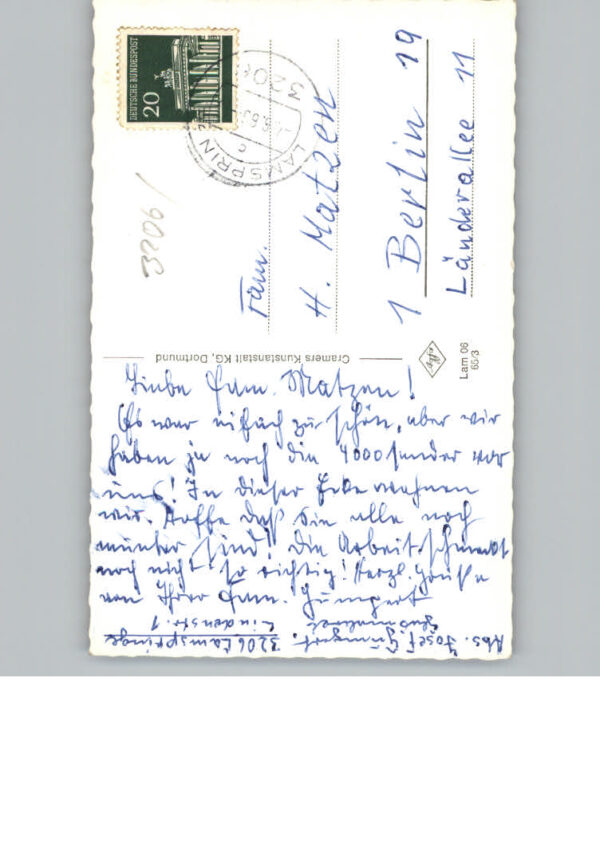 DEUTSCHE BUNDESPOST
20
3206/
LAMSPRIN
Fam.
H. Matzen
1 Berlin 19
Länderallee 11
Cramers Kunstanstalt KG, Dortmund
Lam 06
65/3
Liebe Fam. Matzen!
Es war einfach zu schön, aber wir
haben ja noch die 4000 vor
uns! In dieser Ecke wohnen
wir. Hoffe daß Sie alle noch
munter sind! Die Arbeit schmeckt
noch nicht so richtig! Herzl. Grüße
von Ihrer Fam.
Abs. Josef
3206 Lamspringe
Lindenstr. 1